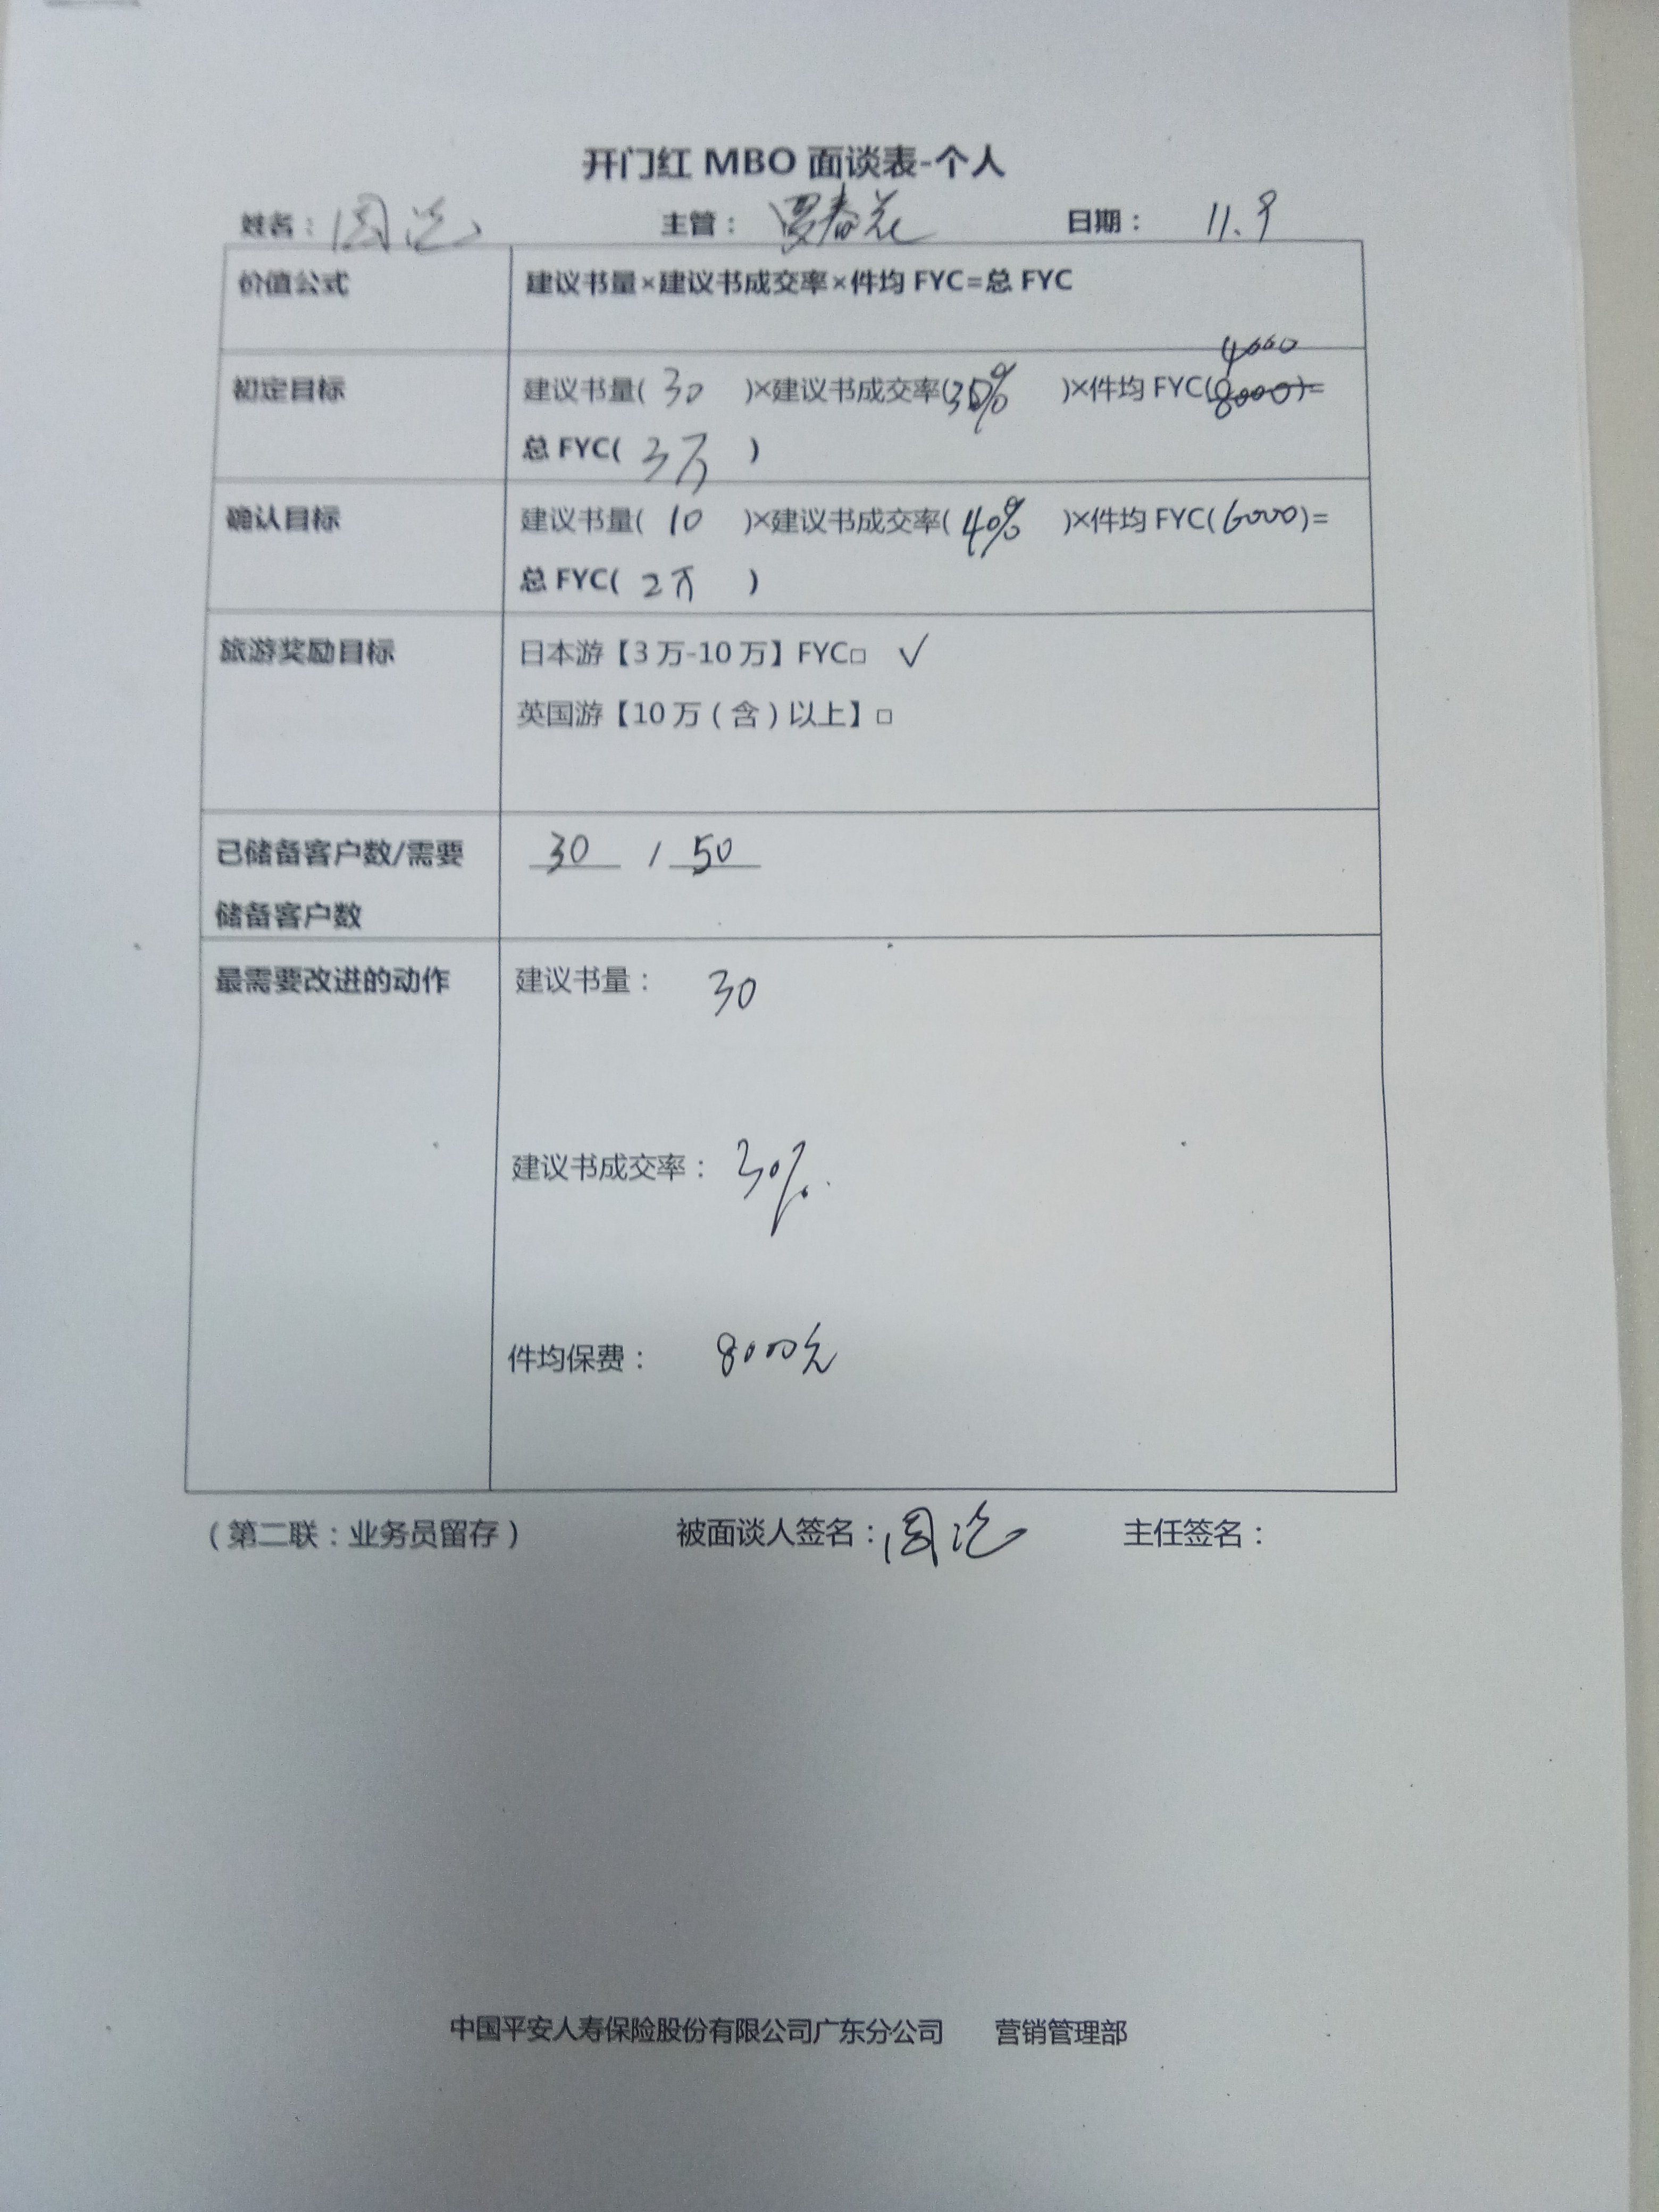 开门红 MBO 面谈表-个人
姓名： 周 主管： 贾春花 日期： 11.9
价值公式 建议书量×建议书成交率×件均 FYC=总 FYC
4000
初定目标 建议书量( 30 )×建议书成交率( )×件均 FYC(8000)=
总 FYC( 3万 )
确认目标 建议书量( 10 )×建议书成交率( 40% )×件均 FYC(6000)=
总 FYC( 2万 )
旅游奖励目标 日本游【3 万-10 万】FYC□ √
英国游【10 万（含）以上】□
已储备客户数/需要 30 / 50
储备客户数
最需要改进的动作 建议书量： 30
建议书成交率： 30%.
件均保费： 8000元
（第二联：业务员留存） 被面谈人签名：周 主任签名：
中国平安人寿保险股份有限公司广东分公司 营销管理部